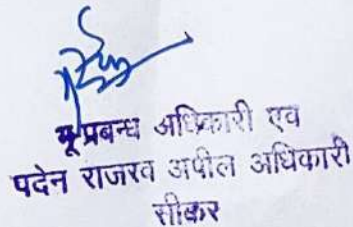 भूप्रबन्ध अधिकारी एव
पदेन राजरव अपील अधिकारी
सीकर